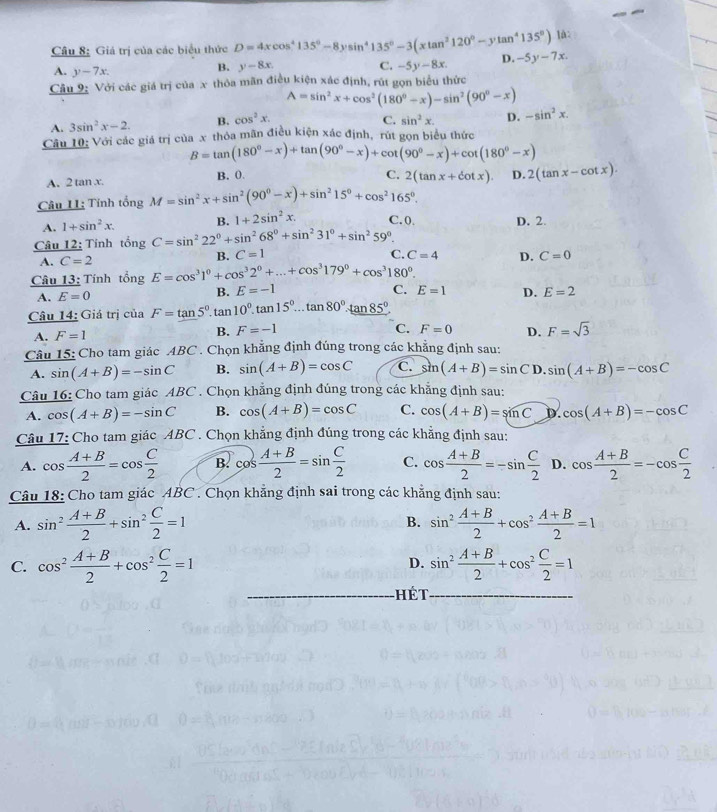 Câu 8: Giá trị của các biểu thức D = 4x cos⁴ 135⁰ − 8y sin⁴ 135⁰ − 3(x tan² 120⁰ − y tan⁴ 135⁰) là:
A. y − 7x. B. y − 8x. C. −5y − 8x. D. −5y − 7x.
Câu 9: Với các giá trị của x thỏa mãn điều kiện xác định, rút gọn biểu thức
A = sin² x + cos² (180⁰ − x) − sin² (90⁰ − x)
A. 3sin² x − 2. B. cos² x. C. sin² x. D. −sin² x.
Câu 10: Với các giá trị của x thỏa mãn điều kiện xác định, rút gọn biểu thức
B = tan(180⁰ − x) + tan(90⁰ − x) + cot(90⁰ − x) + cot(180⁰ − x)
A. 2 tan x. B. 0. C. 2(tan x + cot x). D. 2(tan x − cot x).
Câu 11: Tính tổng M = sin² x + sin² (90⁰ − x) + sin² 15⁰ + cos² 165⁰.
A. 1 + sin² x. B. 1 + 2sin² x. C. 0. D. 2.
Câu 12: Tính tổng C = sin² 22⁰ + sin² 68⁰ + sin² 31⁰ + sin² 59⁰.
A. C = 2 B. C = 1 C. C = 4 D. C = 0
Câu 13: Tính tổng E = cos³1⁰ + cos³2⁰ + ... + cos³179⁰ + cos³180⁰.
A. E = 0 B. E = −1 C. E = 1 D. E = 2
Câu 14: Giá trị của F = tan 5⁰.tan 10⁰.tan 15⁰...tan 80⁰.tan 85⁰.
A. F = 1 B. F = −1 C. F = 0 D. F = √3
Câu 15: Cho tam giác ABC. Chọn khẳng định đúng trong các khẳng định sau:
A. sin(A + B) = −sin C B. sin(A + B) = cos C C. sin(A + B) = sin C D. sin(A + B) = −cos C
Câu 16: Cho tam giác ABC. Chọn khẳng định đúng trong các khẳng định sau:
A. cos(A + B) = −sin C B. cos(A + B) = cos C C. cos(A + B) = sin C D. cos(A + B) = −cos C
Câu 17: Cho tam giác ABC. Chọn khẳng định đúng trong các khẳng định sau:
A. cos (A + B)/2 = cos C/2 B. cos (A + B)/2 = sin C/2 C. cos (A + B)/2 = −sin C/2 D. cos (A + B)/2 = −cos C/2
Câu 18: Cho tam giác ABC. Chọn khẳng định sai trong các khẳng định sau:
A. sin² (A + B)/2 + sin² C/2 = 1 B. sin² (A + B)/2 + cos² (A + B)/2 = 1
C. cos² (A + B)/2 + cos² C/2 = 1 D. sin² (A + B)/2 + cos² C/2 = 1
HẾT